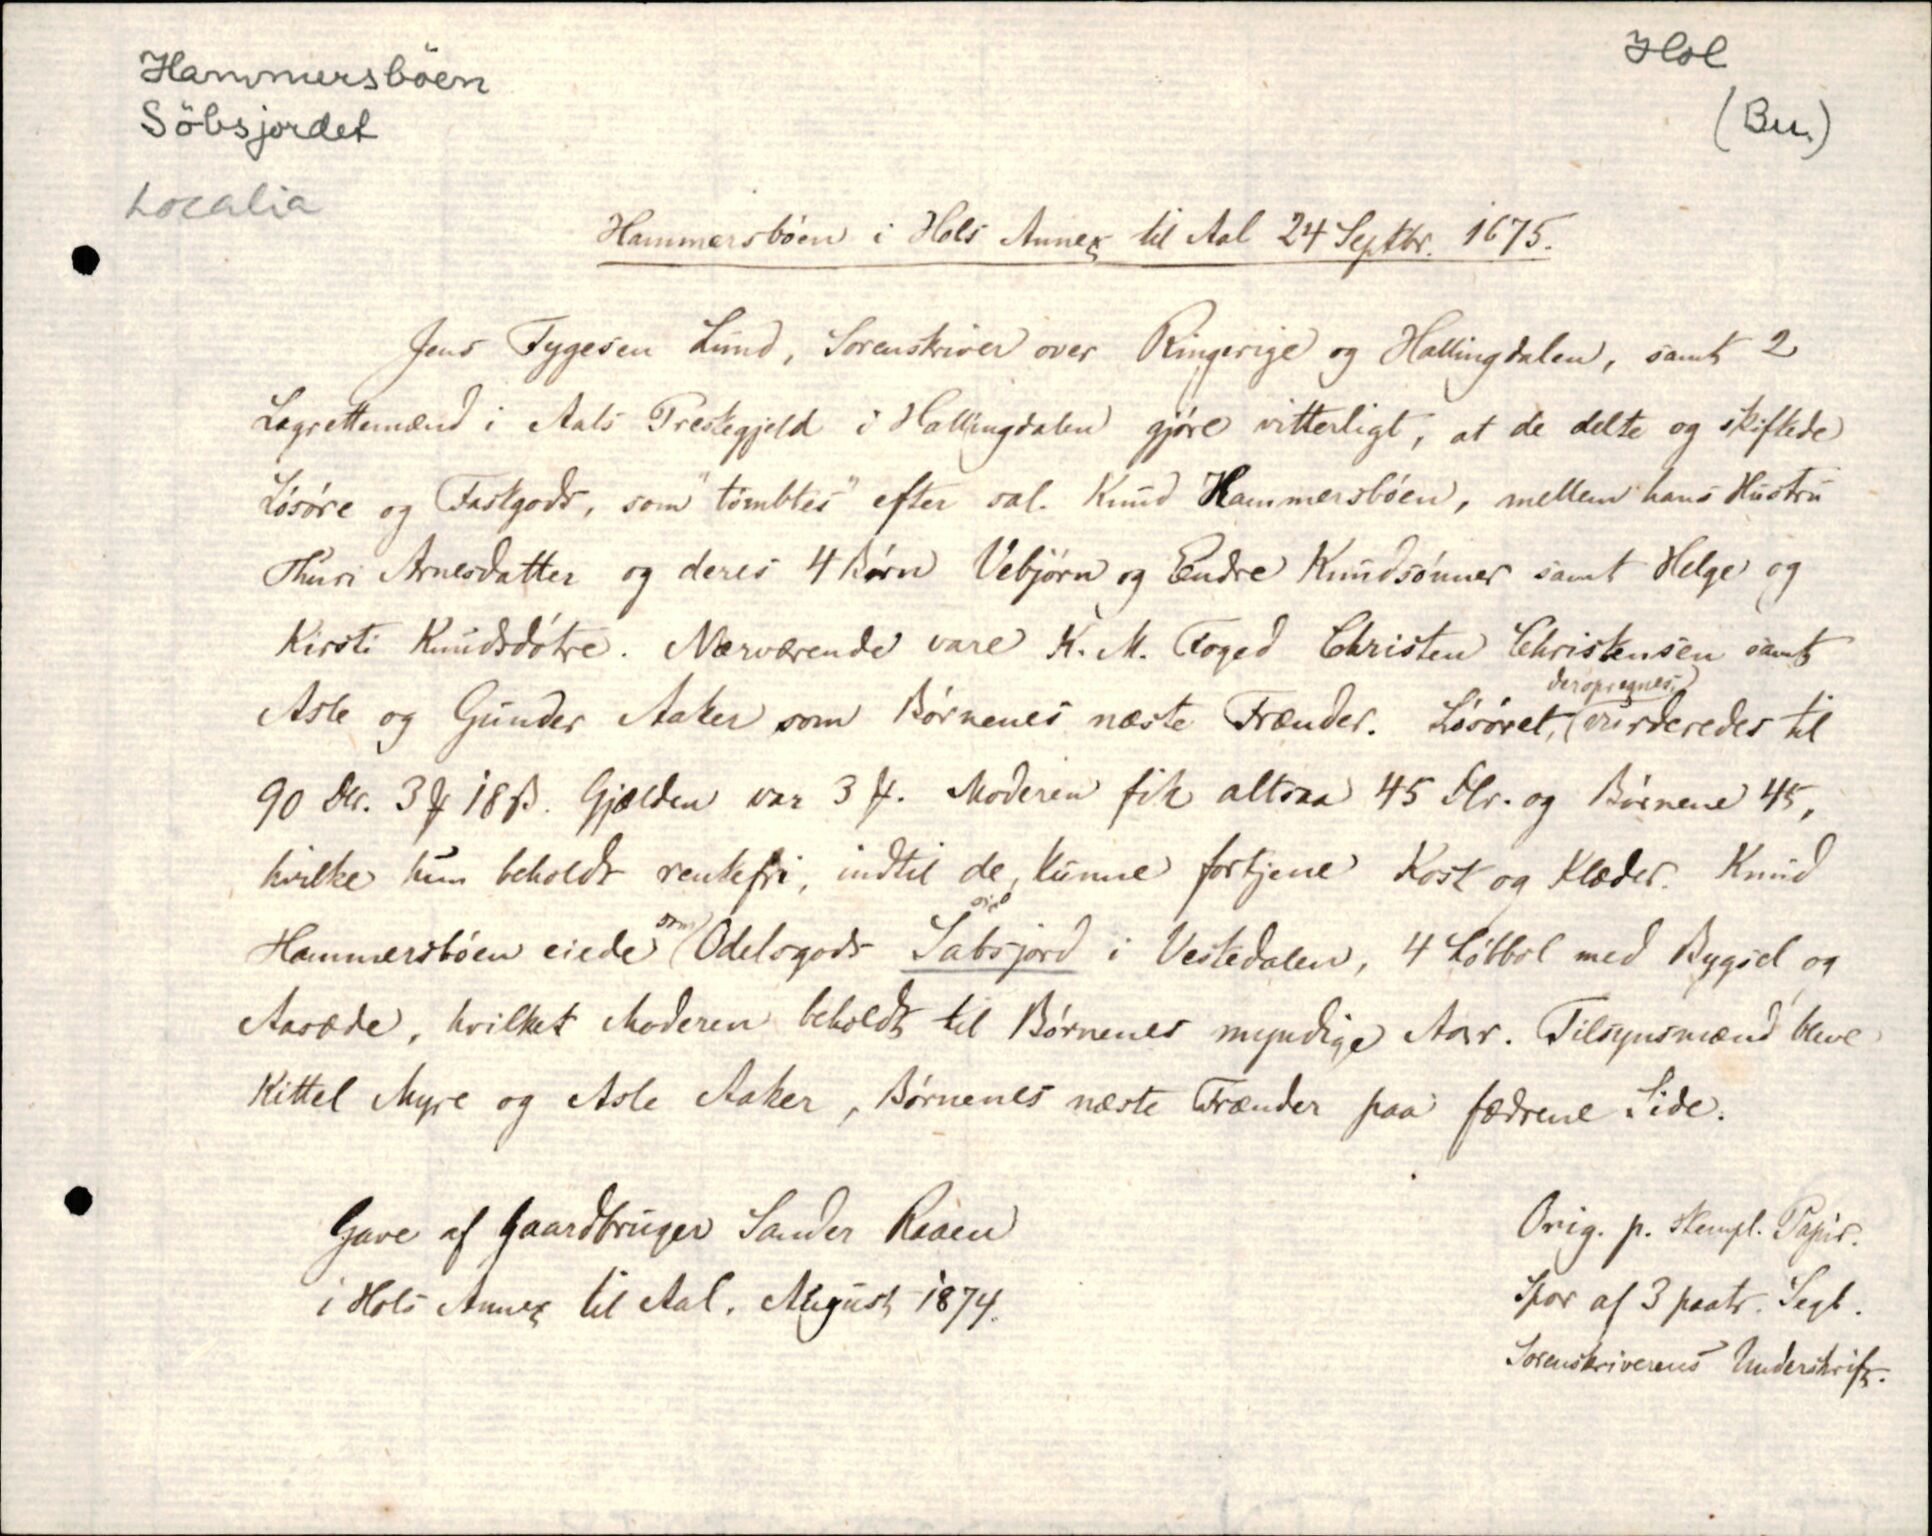 Hammersböen
Söbsjordet
Localia
Hol
(Bu.)
Hammersbøen i Hols Annex til Aal 24 Septbr. 1675.
Jens Tygesen Lund, Sorenskriver over Ringerige og Hallingdalen, samt 2
Lagrettemænd i Aals Prestegjeld i Hallingdalen gjøre vitterligt, at de delte og skiftede
Løsøre og Fastgods, som "tømbtes" efter sal. Knud Hammersbøen, mellem hans Hustru
Thuri Arnesdatter og deres 4 Børn Vebjørn og Endre Knudsønner samt Helge og
Kirsti Knudsdøtre. Nærværende vare K. M. Foged Christen Christensen samt
Asle og Gunder Aaker som Børnenes næste Frænder. Løsøret, (deropregnes,) vurderedes til
90 Dlr. 3 ℳ 18 ß. Gjælden var 3 ℳ. Moderen fik altsaa 45 Dlr. og Børnene 45,
hvilke hun beholdt rentefri, indtil de kunne fortjene Kost og Klæder. Knud
Hammersbøen eiede som Odelsgods Sabsjord i Vestedalen, 4 Løbbol med Bygsel og
Aasæde, hvilket Moderen beholdt til Børnenes myndige Aar. Tilsynsmænd bleve
Kittel Myre og Asle Aaker, Børnenes næste Frænder paa fædrene Side.
Gave af Gaardbruger Sander Raaen
i Hols Annex til Aal. August 1874.
Orig. p. stempl. Papir.
Spor af 3 paatr. Segl.
Sorenskriverens Underskrift.